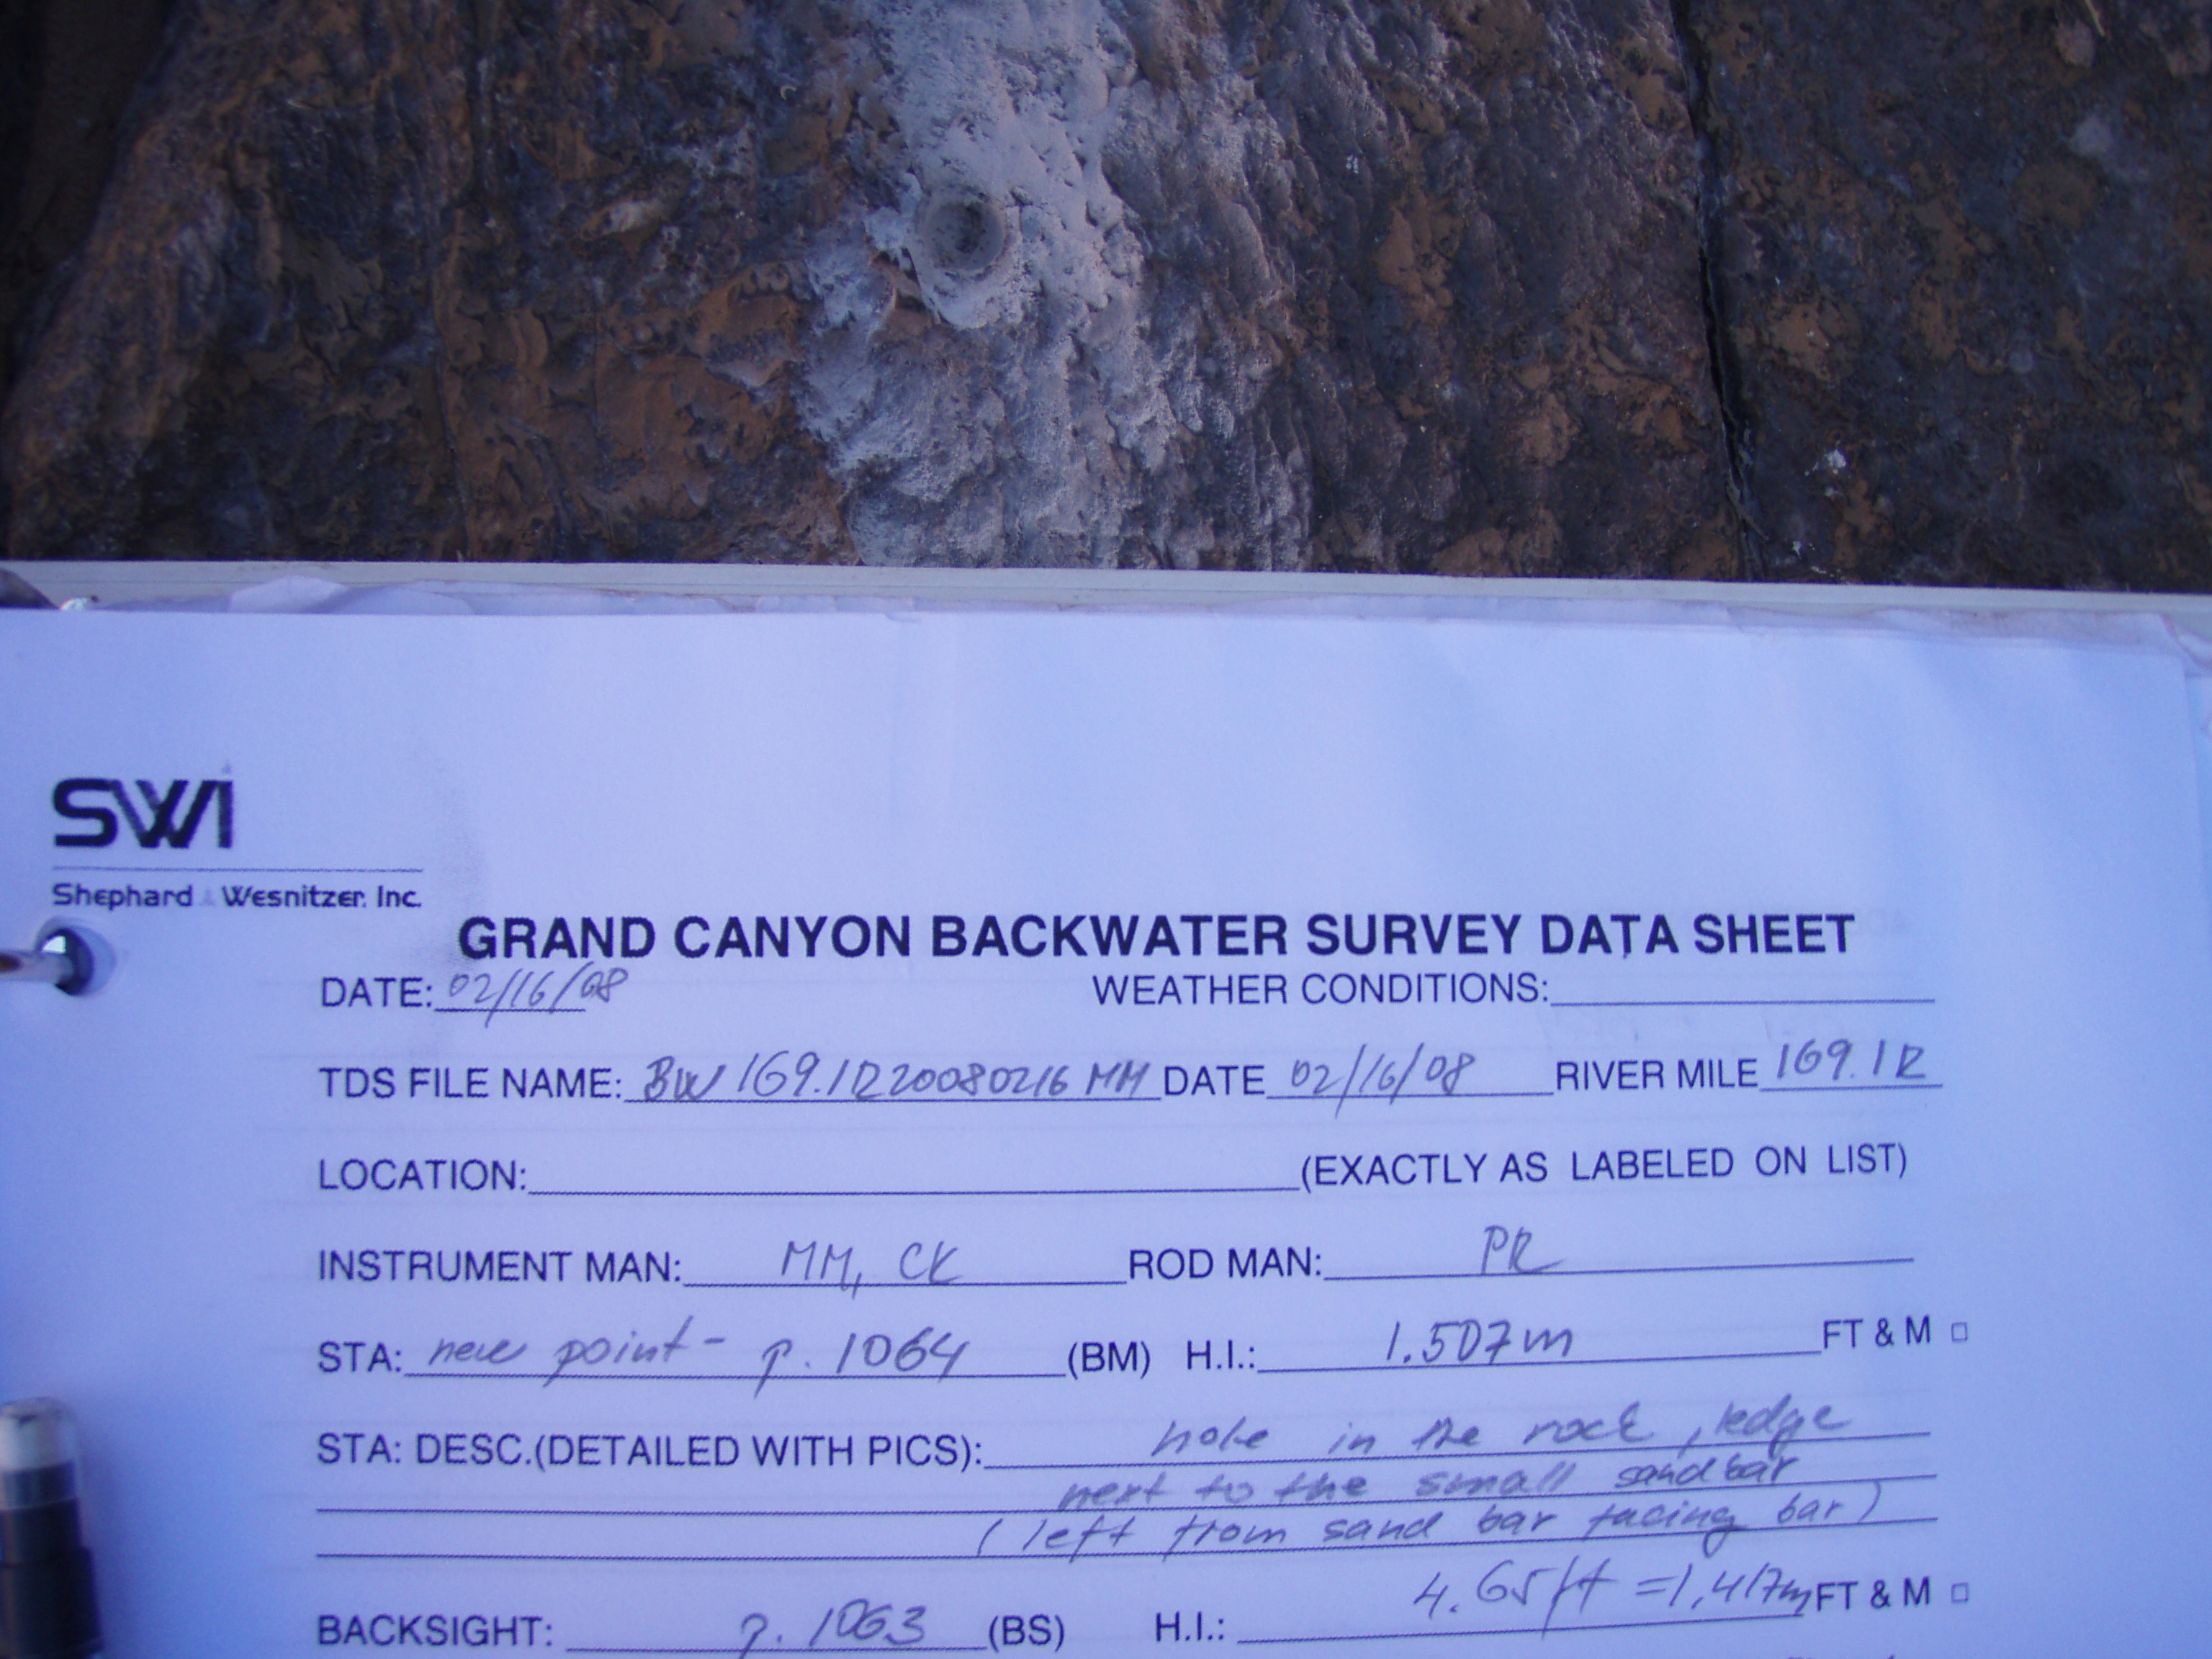 SWI
Shephard & Wesnitzer, Inc.
GRAND CANYON BACKWATER SURVEY DATA SHEET
DATE: 02/16/08 WEATHER CONDITIONS:
TDS FILE NAME: BW 169.1R20080216 MM DATE 02/16/08 RIVER MILE 169.1R
LOCATION: (EXACTLY AS LABELED ON LIST)
INSTRUMENT MAN: MM, CK ROD MAN: PR
STA: new point - p. 1064 (BM) H.I.: 1.507m FT & M
STA: DESC.(DETAILED WITH PICS): hole in the rock, ledge
next to the small sandbar
(left from sand bar facing bar)
BACKSIGHT: p. 1063 (BS) H.I.: 4.65ft = 1,417m FT & M